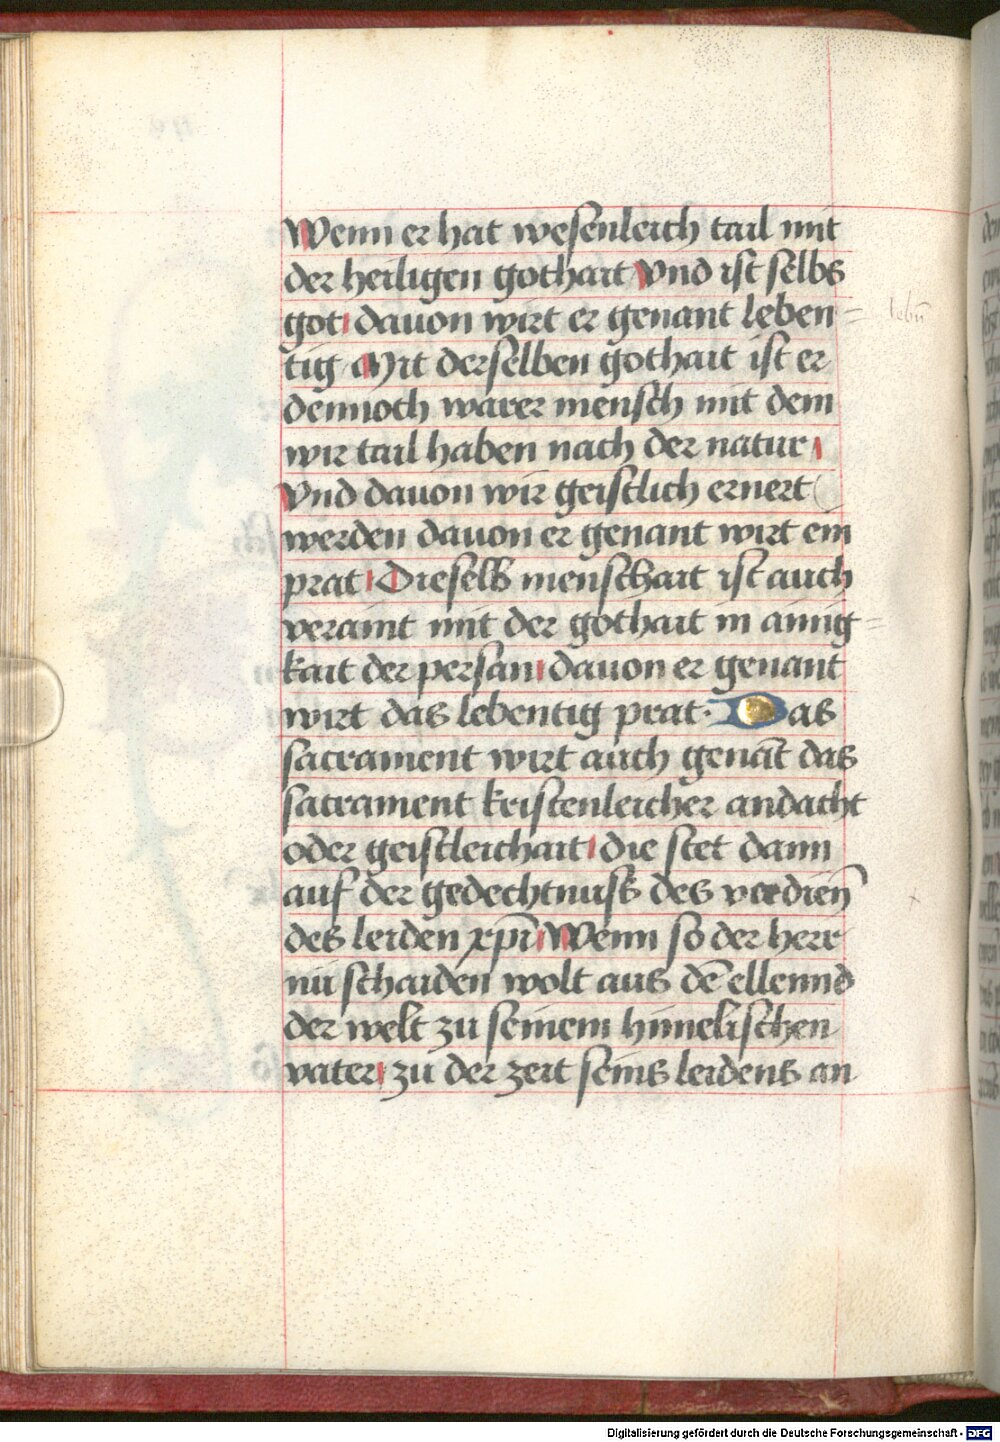 Wenn er hat wesenleich tail mit
der heiligen gothait Vnd ist selbs
got dauon wirt er genant leben=
tig Mit derselben gothait ist er
dennoch warer mensch mit dem
wir tail haben nach der natur
Vnd dauon wir geistlich ernert
werden dauon er genant wirt ein
prat Dieselb menschait ist auch
veraint mit der gothait in ainig=
kait der persan dauon er genant
wirt das lebentig prat· Das
sacrament wirt auch genāt das
sacrament kristenleicher andacht
oder geistleichait die stet dann
auf der gedechtnuss des verdien̄
des leiden xp̄i Wenn so der herr
nu schaiden wolt aus dē ellennd
der welt zu seinem himelischen
vater zu der zeit seins leidens an
Digitalisierung gefördert durch die Deutsche Forschungsgemeinschaft - DFG